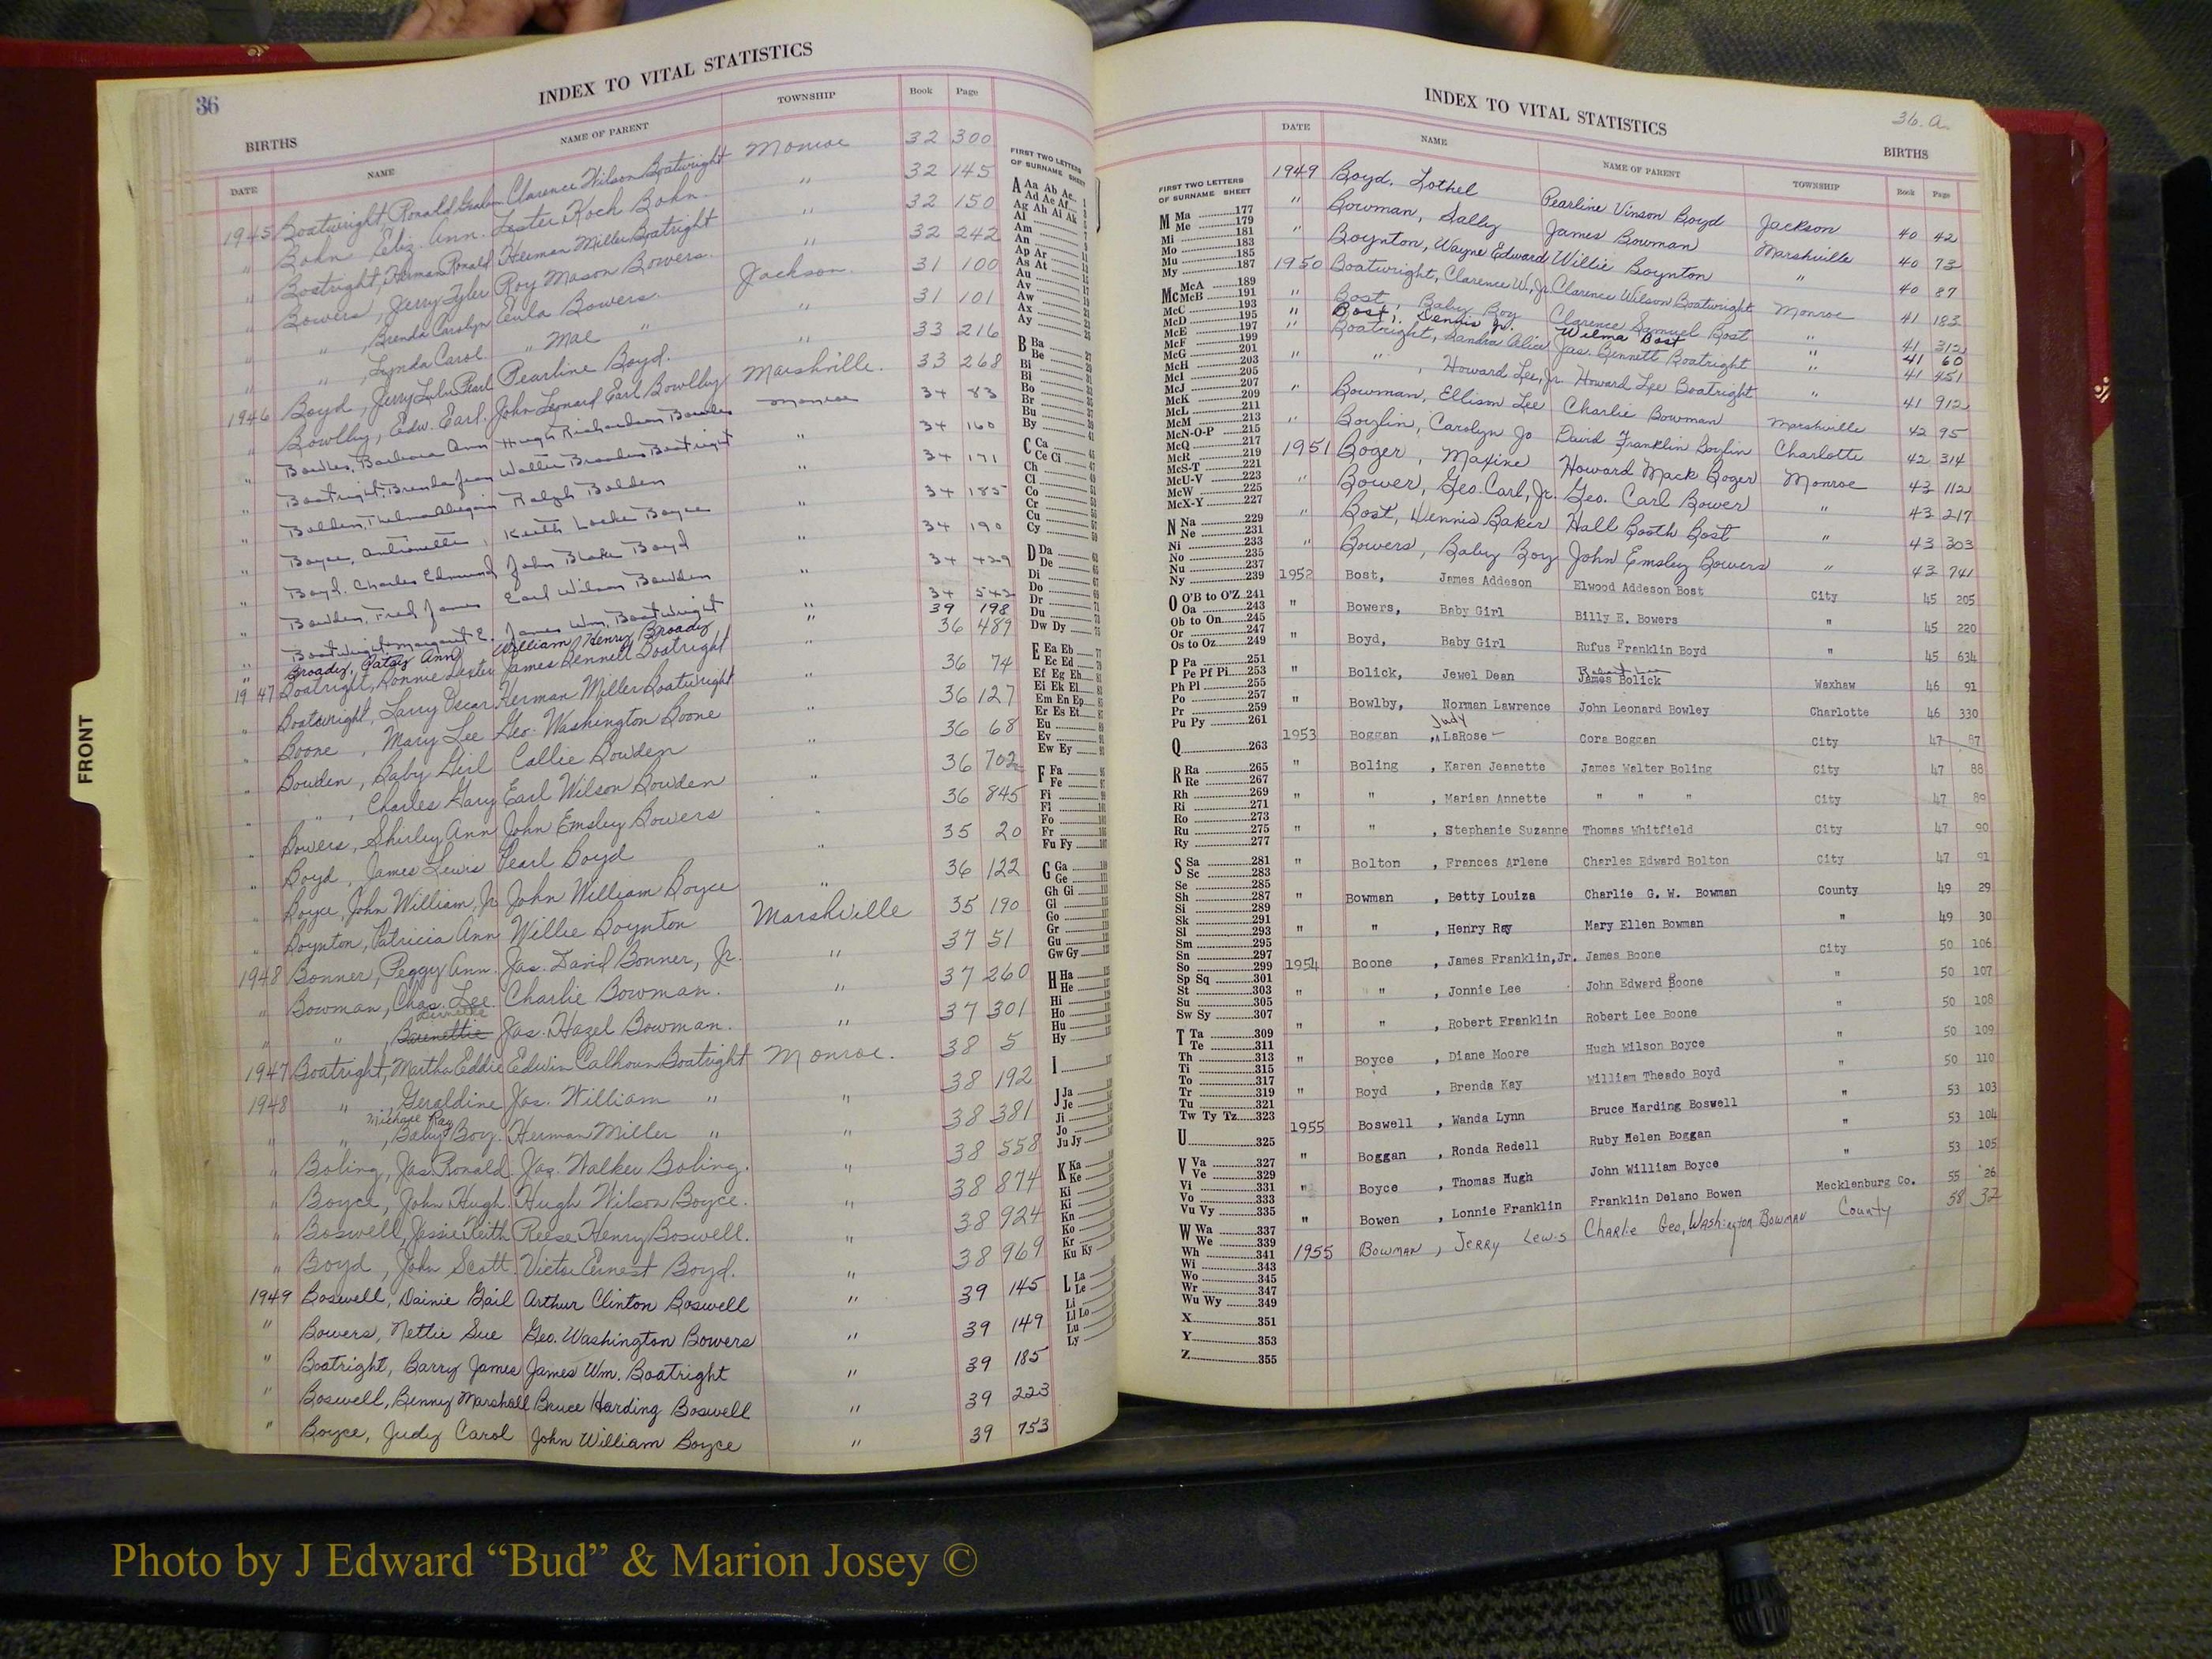 36
INDEX TO VITAL STATISTICS
BIRTHS
DATE NAME NAME OF PARENT TOWNSHIP Book Page
1945 Boatwright Ronald Graham Clarence Wilson Boatwright Monroe 32 300
" Bohn Eliz. Ann. Lester Koch Bohn. " 32 145
" Boatright, Herman Ronald Herman Miller Boatright " 32 150
" Bowers, Jerry Tyler Roy Mason Bowers. " 32 242
" " , Brenda Carolyn Eula Bowers. Jackson. 31 100
" " , Lynda Carol " Mae " " 31 101
1946 Boyd, Jerry Pearl Pearline Boyd. " 33 216
" Bowlby, Edw. Earl. John Leonard Earl Bowlby Marshville. 33 268
" Bowles, Barbara Ann Hugh Richardson Bowles Monroe 34 83
" Boatright, Brenda Jean Walter Boatright " 34 160
" Bolden, Thelma Ralph Bolden " 34 171
" Boyce, Antionette, Keith Locke Boyce " 34 185
" Boyd, Charles Edmund John Blake Boyd " 34 190
" Bowden, Fred James Earl Wilson Bowden " 34 429
" Boatwright, Margaret E. James Wm. Boatwright " 34 542
" Broady, Patsy Ann William Henry Broady " 39 198
1947 Boatright, Ronnie Lester James Bennett Boatright " 36 489
" Boatwright, Larry Oscar Herman Miller Boatwright " 36 74
" Boone, Mary Lee Geo. Washington Boone " 36 127
" Bowden, Baby Girl Callie Bowden " 36 68
" " , Charles Gary Earl Wilson Bowden " 36 702
" Bowers, Shirley Ann John Emsley Bowers " 36 845
" Boyd, James Lewis Pearl Boyd " 35 20
" Boyce, John William, Jr John William Boyce " 36 122
" Boynton, Patricia Ann Willie Boynton Marshville 35 190
1948 Bonner, Peggy Ann. Jas. David Bonner, Jr. " 37 51
" Bowman, Chas. Lee. Charlie Bowman. " 37 260
" " , Jas. Hazel Bowman. " 37 301
1947 Boatright, Martha Eddie Edwin Calhoun Boatright Monroe. 38 5
1948 " Geraldine Jas. William " " 38 192
Michael Ray
" " , Baby Boy. Herman Miller " " 38 381
" Boling, Jas. Ronald. Jas. Walker Boling. " 38 558
" Boyce, John Hugh. Hugh Wilson Boyce. " 38 874
" Boswell, Jessie Keith Reese Henry Boswell. " 38 924
" Boyd, John Scott. Victor Ernest Boyd. " 38 969
1949 Boswell, Dainie Gail Arthur Clinton Boswell " 39 145
" Bowers, Nettie Sue Geo. Washington Bowers " 39 149
" Boatright, Barry James James Wm. Boatright " 39 185
" Boswell, Benny Marshall Bruce Harding Boswell " 39 223
" Boyce, Judy Carol John William Boyce " 39 753
FIRST TWO LETTERS
OF SURNAME SHEET
A Aa Ab Ac
Ad Ae Af
Ag Ah Ai Ak
Al
Am
An
Ap Ar
As At
Au
Av
Aw
Ax
Ay
B Ba
Be
Bi
Bl
Bo
Br
Bu
By
C Ca
Ce Ci
Ch
Cl
Co
Cr
Cu
Cy
D Da
De
Di
Do
Dr
Du
Dw Dy
E Ea Eb
Ec Ed
Ef Eg Eh
Ei Ek El
Em En Ep
Er Es Et
Eu
Ev
Ew Ey
F Fa
Fe
Fi
Fl
Fo
Fr
Fu Fy
G Ga
Ge
Gh Gi
Gl
Go
Gr
Gu
Gw Gy
H Ha
He
Hi
Ho
Hu
Hy
I
J Ja
Je
Ji
Jo
Ju Jy
K Ka
Ke
Ki
Kl
Kn
Ko
Kr
Ku Ky
L La
Le
Li
Ll Lo
Lu
Ly
FRONT
INDEX TO VITAL STATISTICS
36. a.
BIRTHS
DATE NAME NAME OF PARENT TOWNSHIP Book Page
1949 Boyd, Lothel Pearline Vinson Boyd Jackson 40 42
" Bowman, Sally James Bowman Marshville 40 73
" Boynton, Wayne Edward Willie Boynton " 40 87
1950 Boatwright, Clarence W., Jr Clarence Wilson Boatwright Monroe 41 183
" Bost, Baby Boy Clarence Samuel Bost " 41 312
" Bost, Dennis Jr. Wilma Bost " 41 60
" Boatright, Sandra Alice Jas. Bennett Boatright " 41 451
" " , Howard Lee, Jr. Howard Lee Boatright " 41 912
" Bowman, Ellison Lee Charlie Bowman Marshville 42 95
" Boylin, Carolyn Jo David Franklin Boylin Charlotte 42 314
1951 Boger, Maxine Howard Mack Boger Monroe 43 112
" Bower, Geo. Carl, Jr. Geo. Carl Bower " 43 217
" Bost, Dennis Baker Hall Booth Bost " 43 303
" Bowers, Baby Boy John Emsley Bowers " 43 741
1952 Bost, James Addeson Elwood Addeson Bost City 45 205
" Bowers, Baby Girl Billy E. Bowers " 45 220
" Boyd, Baby Girl Rufus Franklin Boyd " 45 634
" Bolick, Jewel Dean James Bolick Waxhaw 46 91
" Bowlby, Norman Lawrence John Leonard Bowley Charlotte 46 330
Judy
1953 Boggan , LaRose Cora Boggan City 47 87
" Boling , Karen Jeanette James Walter Boling City 47 88
" " , Marian Annette " " " City 47 89
" " , Stephanie Suzanne Thomas Whitfield City 47 90
" Bolton , Frances Arlene Charles Edward Bolton City 47 91
" Bowman , Betty Louiza Charlie G. W. Bowman County 49 29
" " , Henry Ray Mary Ellen Bowman " 49 30
1954 Boone , James Franklin,Jr. James Boone City 50 106
" " , Jonnie Lee John Edward Boone " 50 107
" " , Robert Franklin Robert Lee Boone " 50 108
" Boyce , Diane Moore Hugh Wilson Boyce " 50 109
" Boyd , Brenda Kay William Theado Boyd " 50 110
1955 Boswell , Wanda Lynn Bruce Harding Boswell " 53 103
" Boggan , Ronda Redell Ruby Helen Boggan " 53 104
" Boyce , Thomas Hugh John William Boyce " 53 105
" Bowen , Lonnie Franklin Franklin Delano Bowen Mecklenburg Co. 55 26
1955 Bowman , Jerry Lewis Charlie Geo. Washington Bowman County 58 37
FIRST TWO LETTERS
OF SURNAME SHEET
M Ma 177
Me 179
Mi 181
Mo 183
Mu 185
My 187
Mc McA 189
McB 191
McC 193
McD 195
McE 197
McF 199
McG 201
McH 203
McI 205
McJ 207
McK 209
McL 211
McM 213
McN-O-P 215
McQ 217
McR 219
McS-T 221
McU-V 223
McW 225
McX-Y 227
N Na 229
Ne 231
Ni 233
No 235
Nu 237
Ny 239
O O'B to O'Z 241
Oa 243
Ob to On 245
Or 247
Os to Oz 249
P Pa 251
Pe Pf Pi 253
Ph Pl 255
Po 257
Pr 259
Pu Py 261
Q 263
R Ra 265
Re 267
Rh 269
Ri 271
Ro 273
Ru 275
Ry 277
S Sa 281
Sc 283
Se 285
Sh 287
Si 289
Sk 291
Sl 293
Sm 295
Sn 297
So 299
Sp Sq 301
St 303
Su 305
Sw Sy 307
T Ta 309
Te 311
Th 313
Ti 315
To 317
Tr 319
Tu 321
Tw Ty Tz 323
U 325
V Va 327
Ve 329
Vi 331
Vo 333
Vu Vy 335
W Wa 337
We 339
Wh 341
Wi 343
Wo 345
Wr 347
Wu Wy 349
X 351
Y 353
Z 355
Photo by J Edward “Bud” & Marion Josey ©